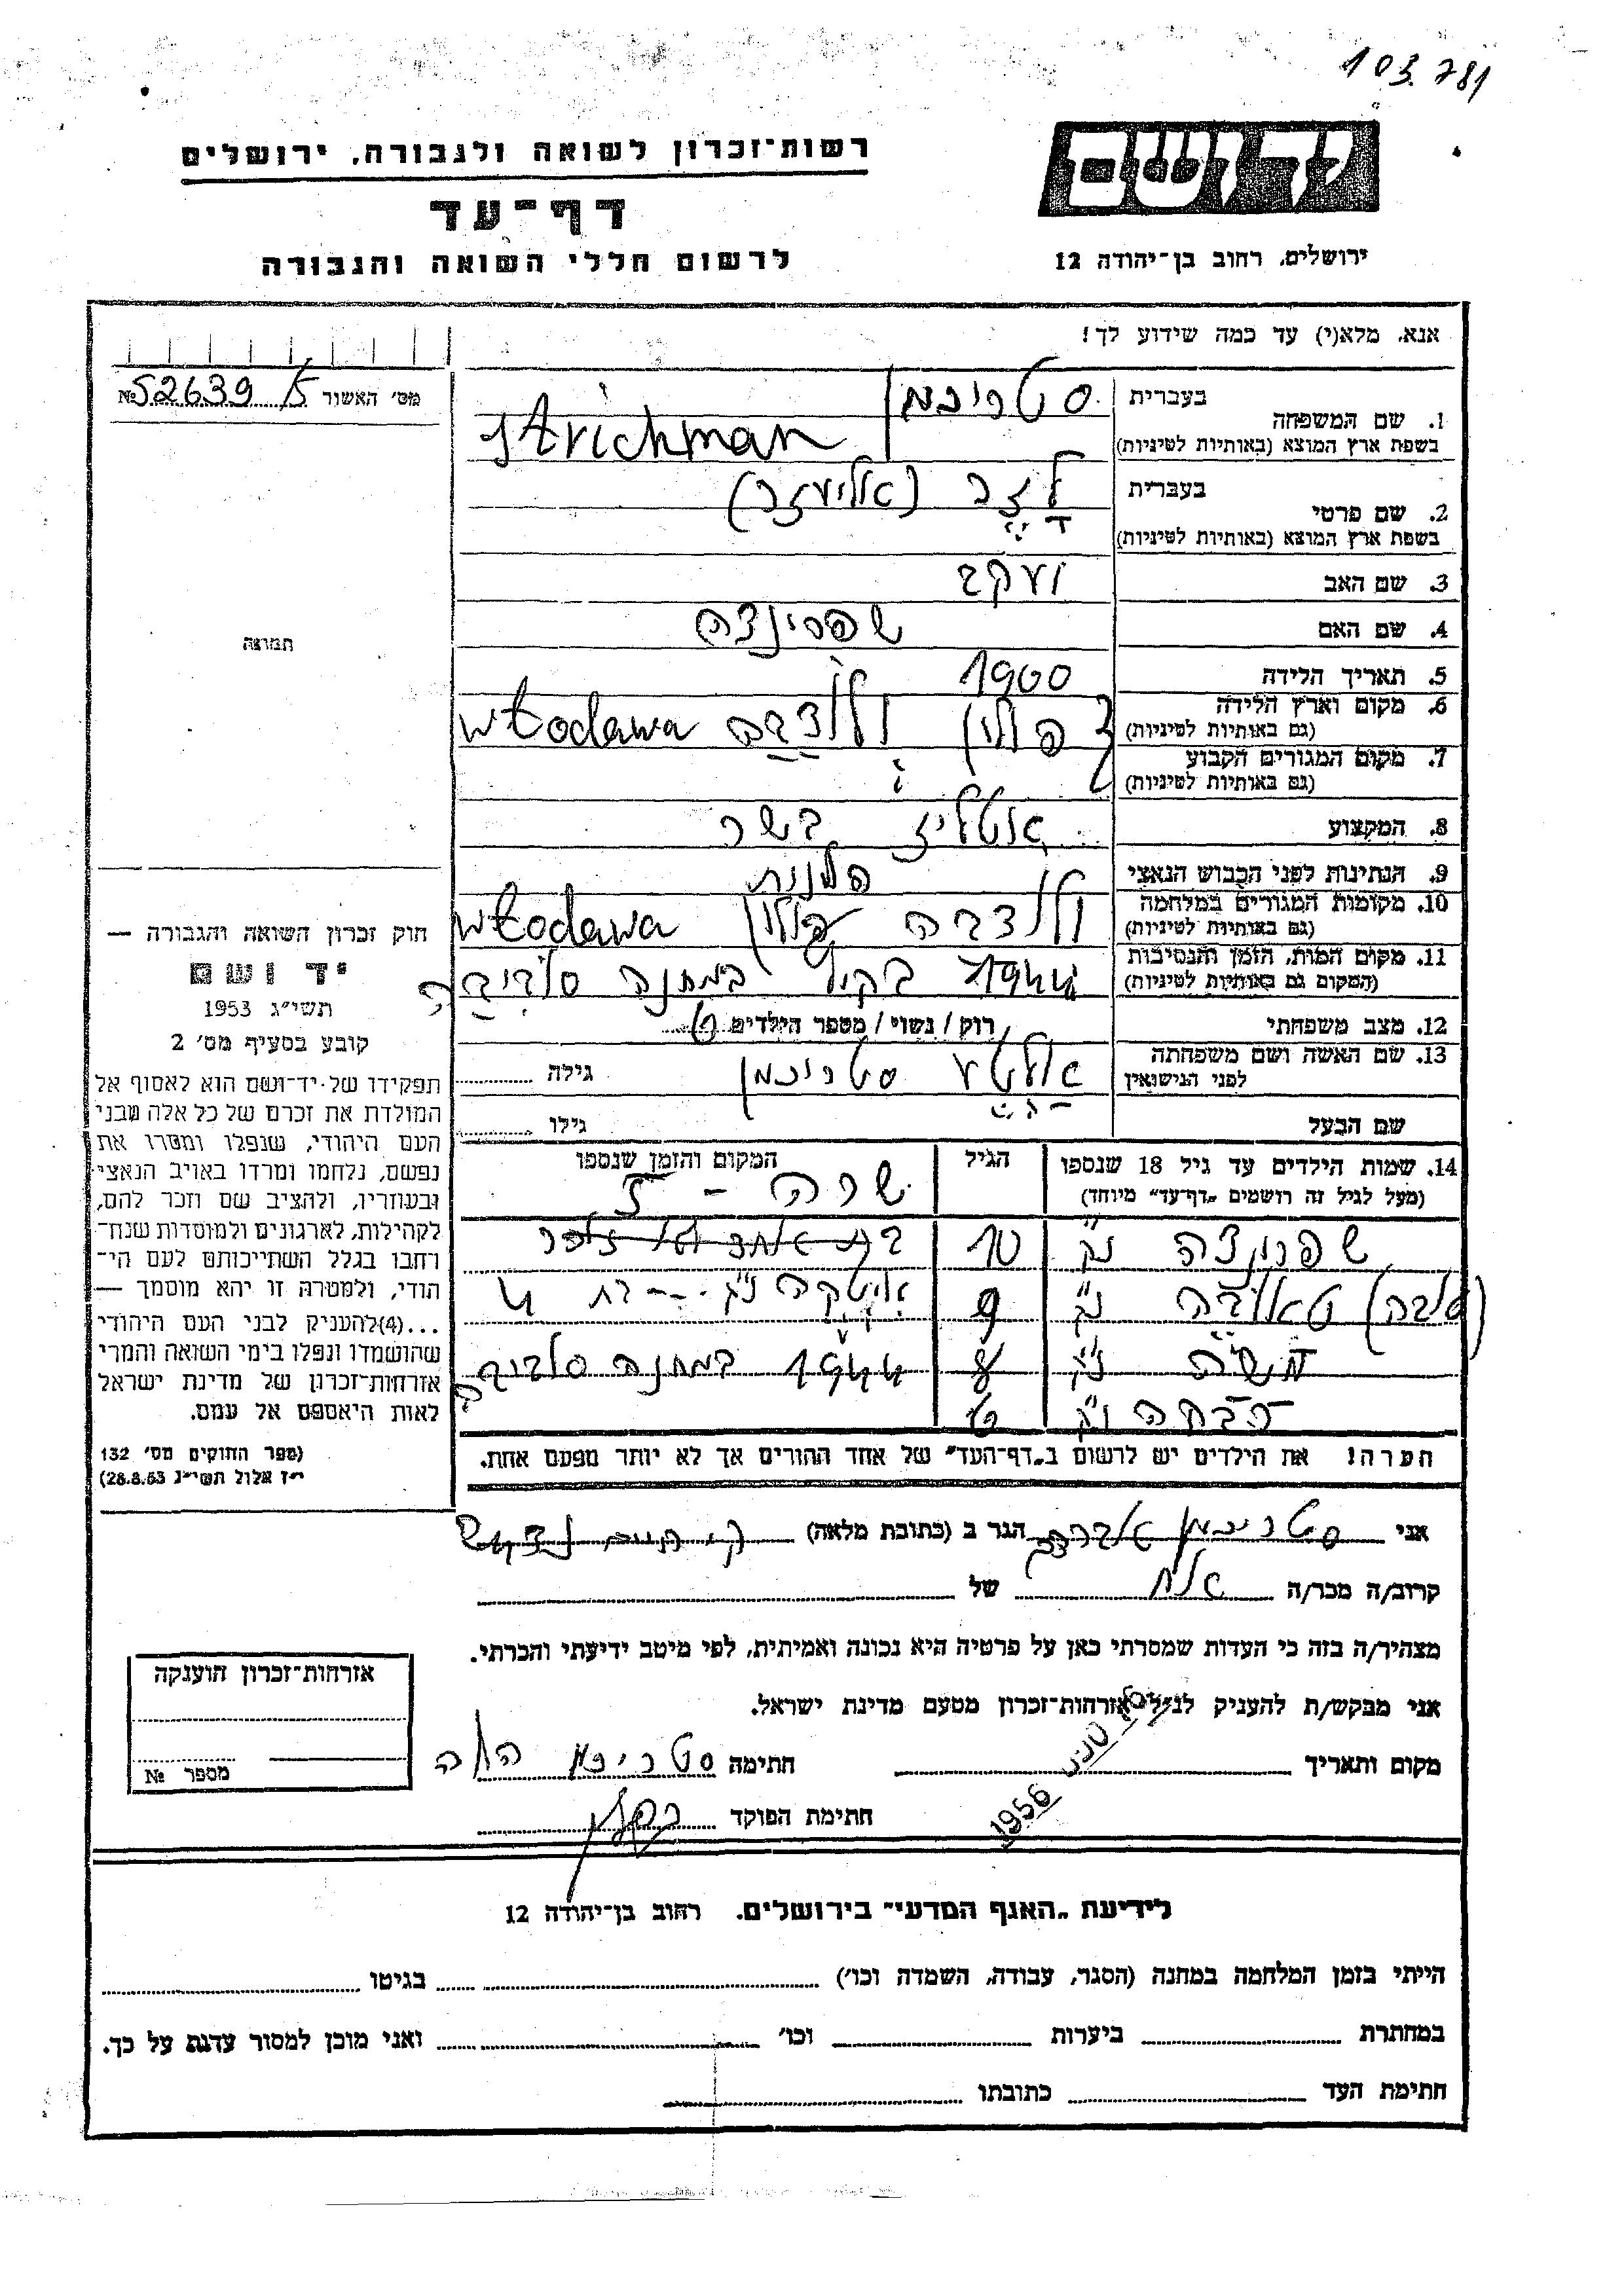 103.781
יד ושם
רשות־זכרון לשואה ולגבורה, ירושלים
דף־עד
לרשום חללי השואה והגבורה
ירושלים, רחוב בן־יהודה 12
אנא, מלא(י) עד כמה שידוע לך!
מס׳ האשור №52639/5
1. שם המשפחה בעברית סטריכמן
בשפת ארץ המוצא (באותיות לטיניות) Strichman
2. שם פרטי בעברית לזר (אליעזר)
בשפת ארץ המוצא (באותיות לטיניות)
3. שם האב יעקב
4. שם האם שפרינצה
תמונה
5. תאריך הלידה 1900
6. מקום וארץ הלידה פולין ולודבה Włodawa
(גם באותיות לטיניות)
7. מקום המגורים הקבוע
(גם באותיות לטיניות)
8. המקצוע אטליז בשר
9. הנתינות לפני הכבוש הנאצי פולנית
10. מקומות המגורים במלחמה ולודבה פולין Włodawa
(גם באותיות לטיניות)
11. מקום המות, הזמן והנסיבות 1944 במחנה סוביבר
(המקום גם באותיות לטיניות)
12. מצב משפחתי רוק / נשוי / מספר הילדים 6
13. שם האשה ושם משפחתה לפני הנישואין סטריכמן גילה
שם הבעל גילו
14. שמות הילדים עד גיל 18 שנספו הגיל המקום והזמן שנספו
(מעל לגיל זה רושמים „דף־עד” מיוחד) שרה - 5
שפרינצה 10
9
8 1944 במחנה
6
הערה! את הילדים יש לרשום ב„דף־העד” של אחד ההורים אך לא יותר מפעם אחת.
חוק זכרון השואה והגבורה —
יד ושם
תשי״ג 1953
קובע בסעיף מס׳ 2
תפקידו של יד־ושם הוא לאסוף אל
המולדת את זכרם של כל אלה מבני
העם היהודי, שנפלו ומסרו את
נפשם, נלחמו ומרדו באויב הנאצי
ובעוזריו, ולהציב שם וזכר להם,
לקהילות, לארגונים ולמוסדות שנח־
רחבו בגלל השתייכותם לעם הי־
הודי, ולמטרה זו יהא מוסמך —
...(4)להעניק לבני העם היהודי
שהושמדו ונפלו בימי השואה והמרי
אזרחות־זכרון של מדינת ישראל
לאות היאספם אל עמם.
(ספר החוקים מס׳ 132
י״ז אלול תשי״ג 28.8.53)
אני סטריכמן אברהם הגר ב (כתובת מלאה)
קרוב/ה מכר/ה אח של
מצהיר/ה בזה כי העדות שמסרתי כאן על פרטיה היא נכונה ואמיתית, לפי מיטב ידיעתי והכרתי.
אני מבקש/ת להעניק לנ״ל אזרחות־זכרון מטעם מדינת ישראל.
מקום ותאריך 1956 חתימה סטריכמן
חתימת הפוקד
אזרחות־זכרון הוענקה
מספר №
לידיעת „האגף המדעי” בירושלים, רחוב בן־יהודה 12
הייתי בזמן המלחמה במחנה (הסגר, עבודה, השמדה וכו׳) בגיטו
במחתרת ביערות וכו׳ ואני מוכן למסור עדות על כך.
חתימת העד כתובתו